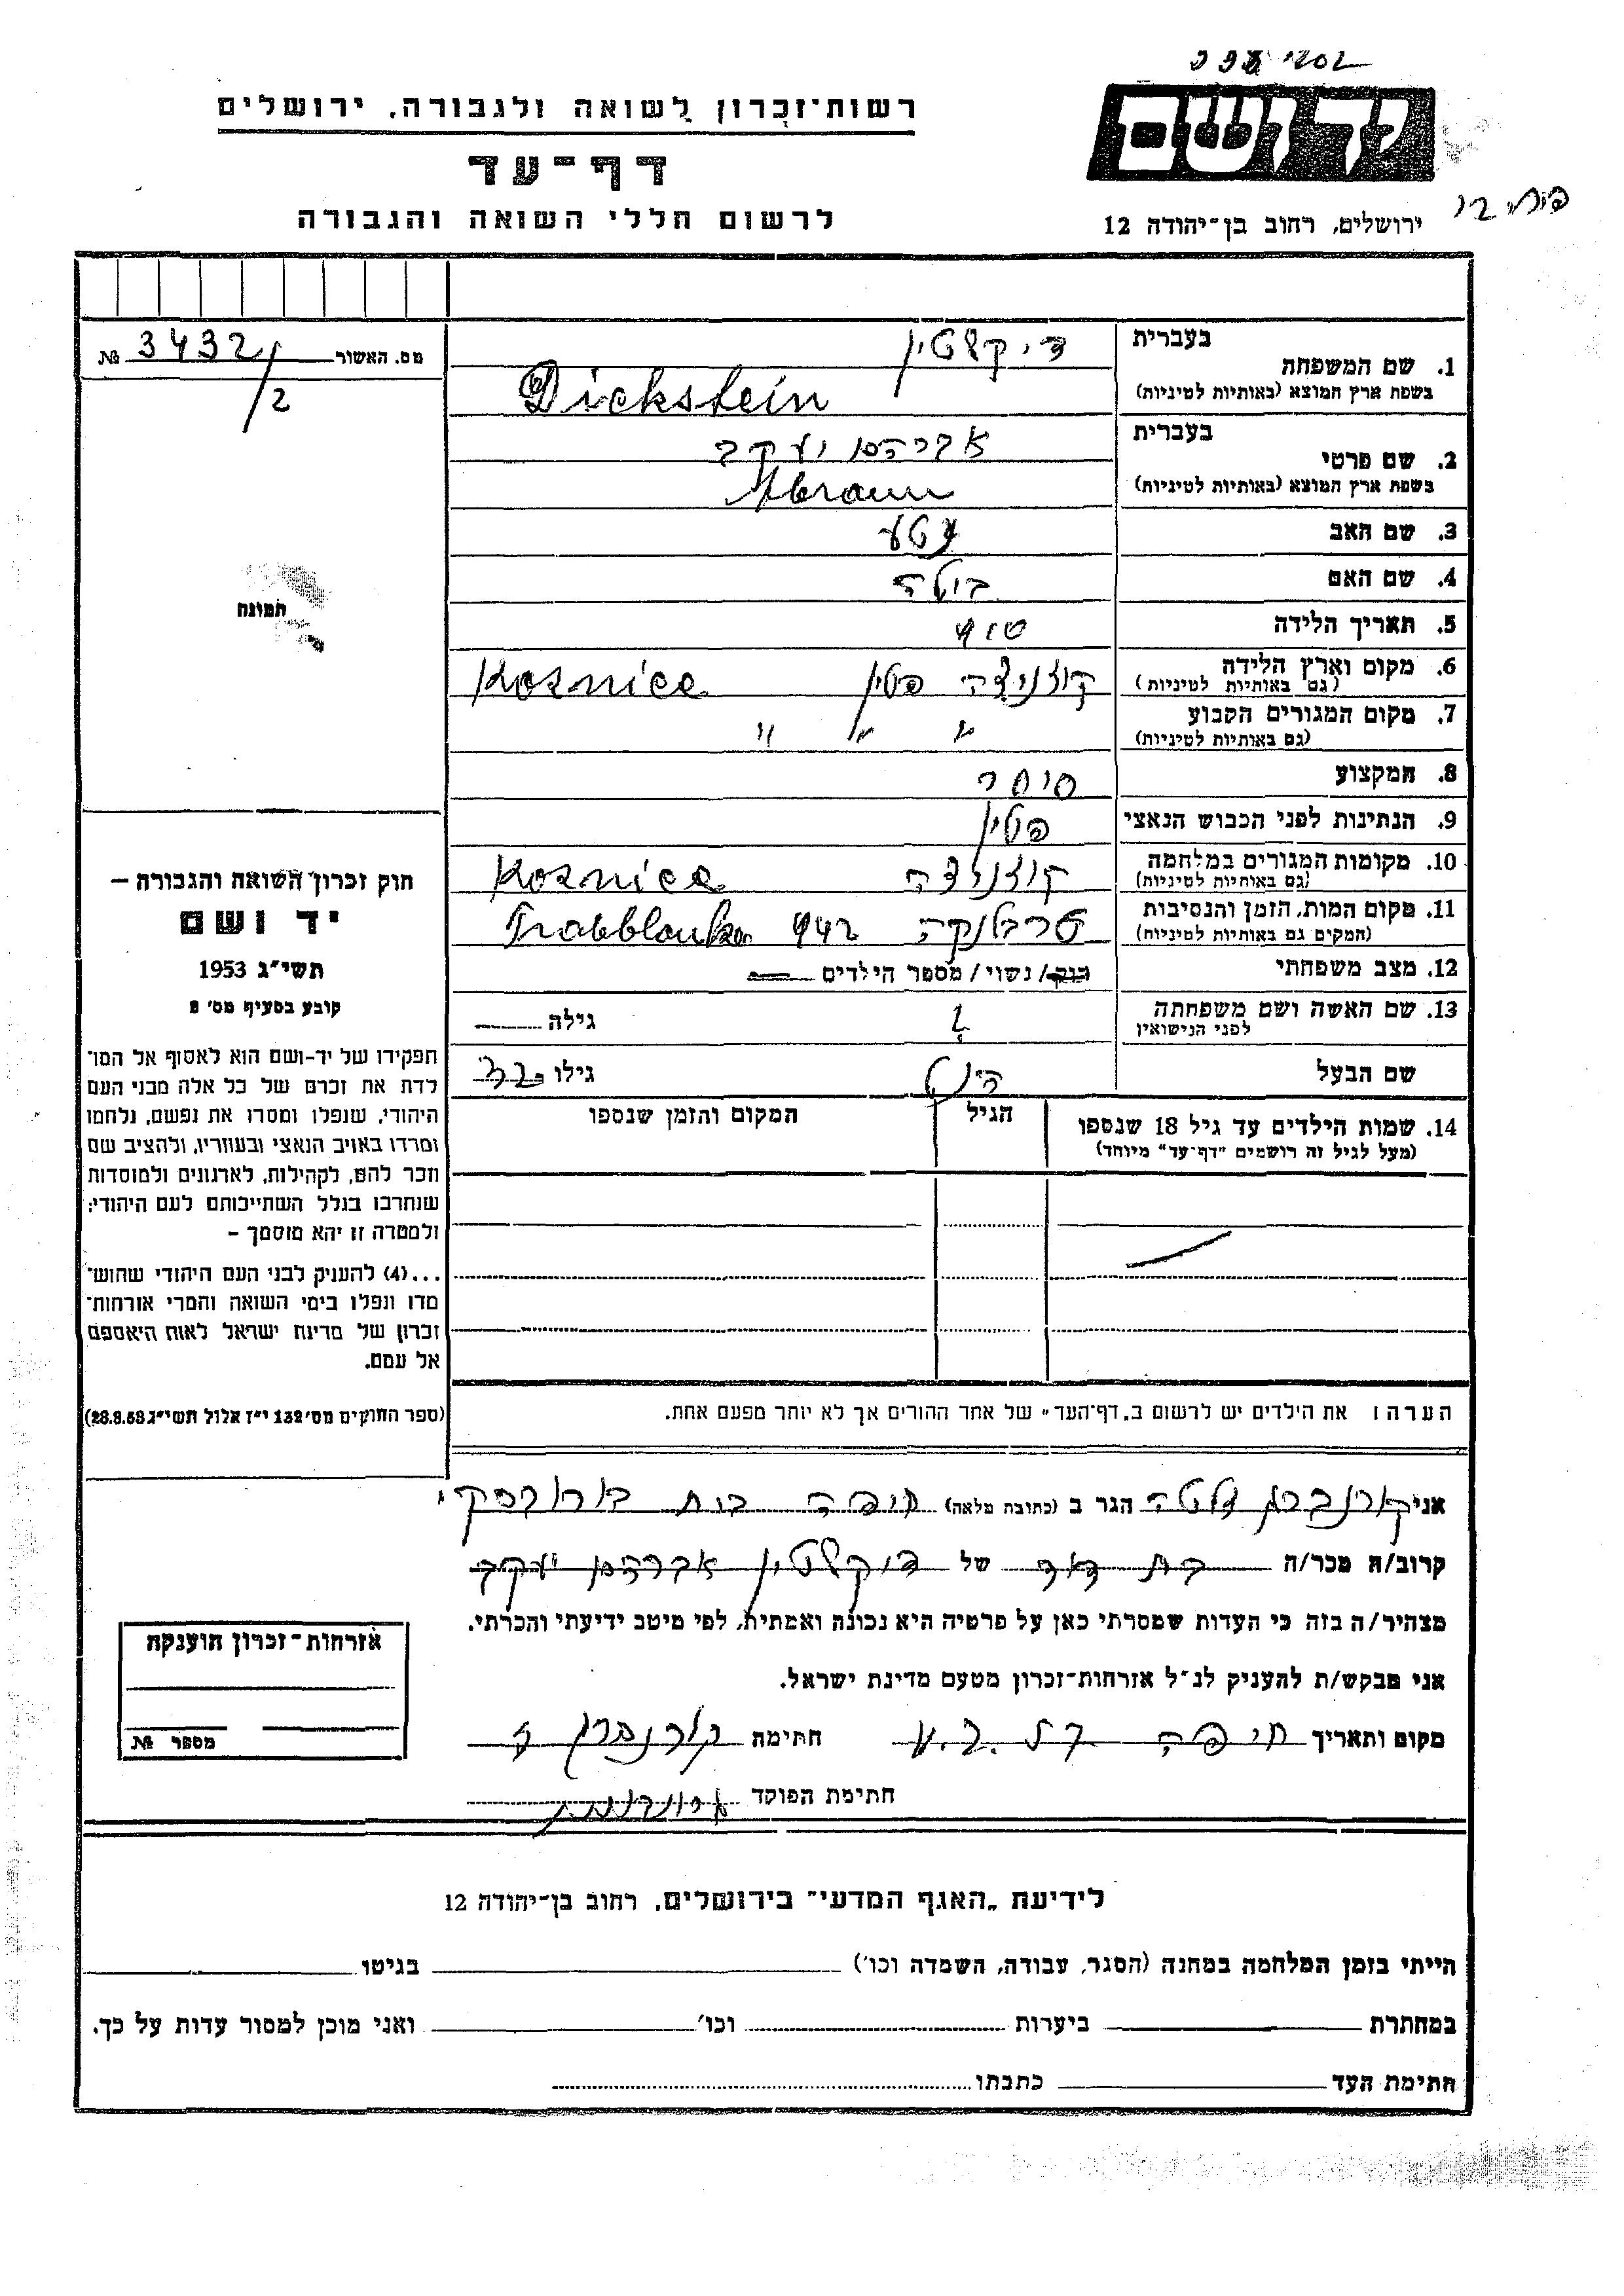 יד ושם
רשות־זכרון לשואה ולגבורה, ירושלים
דף־עד
לרשום חללי השואה והגבורה
ירושלים, רחוב בן־יהודה 12
מס. האשור 3432/2 №
תמונה
חוק זכרון השואה והגבורה –
יד ושם
תשי״ג 1953
קובע בסעיף מס׳ 2
תפקידו של יד-ושם הוא לאסוף אל המו־
לדת את זכרם של כל אלה מבני העם
היהודי, שנפלו ומסרו את נפשם, נלחמו
ומרדו באויב הנאצי ובעוזריו, ולהציב שם
וזכר להם, לקהילות, לארגונים ולמוסדות
שנחרבו בגלל השתייכותם לעם היהודי;
ולמטרה זו יהא מוסמך –
...(4) להעניק לבני העם היהודי שהוש־
מדו ונפלו בימי השואה והמרי אזרחות־
זכרון של מדינת ישראל לאות היאספם
אל עמם.
(ספר החוקים מס׳ 132 י״ז אלול תשי״ג 28.8.53)
בעברית דיקשטין
1. שם המשפחה
בשפת ארץ המוצא (באותיות לטיניות) Dickstein
בעברית אברהם יעקב
2. שם פרטי
בשפת ארץ המוצא (באותיות לטיניות) Abram
3. שם האב
4. שם האם
5. תאריך הלידה
6. מקום וארץ הלידה קוזניצה פולין Koznice
(גם באותיות לטיניות)
7. מקום המגורים הקבוע " " "
(גם באותיות לטיניות)
8. המקצוע סוחר
9. הנתינות לפני הכבוש הנאצי פולין
10. מקומות המגורים במלחמה קוזניצה Koznice
(גם באותיות לטיניות)
11. מקום המות, הזמן והנסיבות טרבלנקה 942 Trabblanka
(המקום גם באותיות לטיניות)
12. מצב משפחתי רווק/ נשוי/ מספר הילדים —
13. שם האשה ושם משפחתה ? גילה
לפני הנישואין
שם הבעל גילו
14. שמות הילדים עד גיל 18 שנספו הגיל המקום והזמן שנספו
(מעל לגיל זה רושמים "דף־עד" מיוחד)
הערה: את הילדים יש לרשום ב„דף־העד״ של אחד ההורים אך לא יותר מפעם אחת.
אני קורנברג הגר ב (כתובת מלאה) חיפה
קרוב/ה מכר/ה בת דוד של דיקשטין אברהם יעקב
מצהיר/ה בזה כי העדות שמסרתי כאן על פרטיה היא נכונה ואמתית, לפי מיטב ידיעתי והכרתי.
אני מבקש/ת להעניק לנ״ל אזרחות־זכרון מטעם מדינת ישראל.
מקום ותאריך חיפה חתימה קורנברג
חתימת הפוקד
אזרחות־זכרון הוענקה
מספר №
לידיעת „האגף המדעי״ בירושלים, רחוב בן־יהודה 12
הייתי בזמן המלחמה במחנה (הסגר, עבודה, השמדה וכו׳) בגיטו
במחתרת ביערות וכו׳ ואני מוכן למסור עדות על כך.
חתימת העד כתבתו